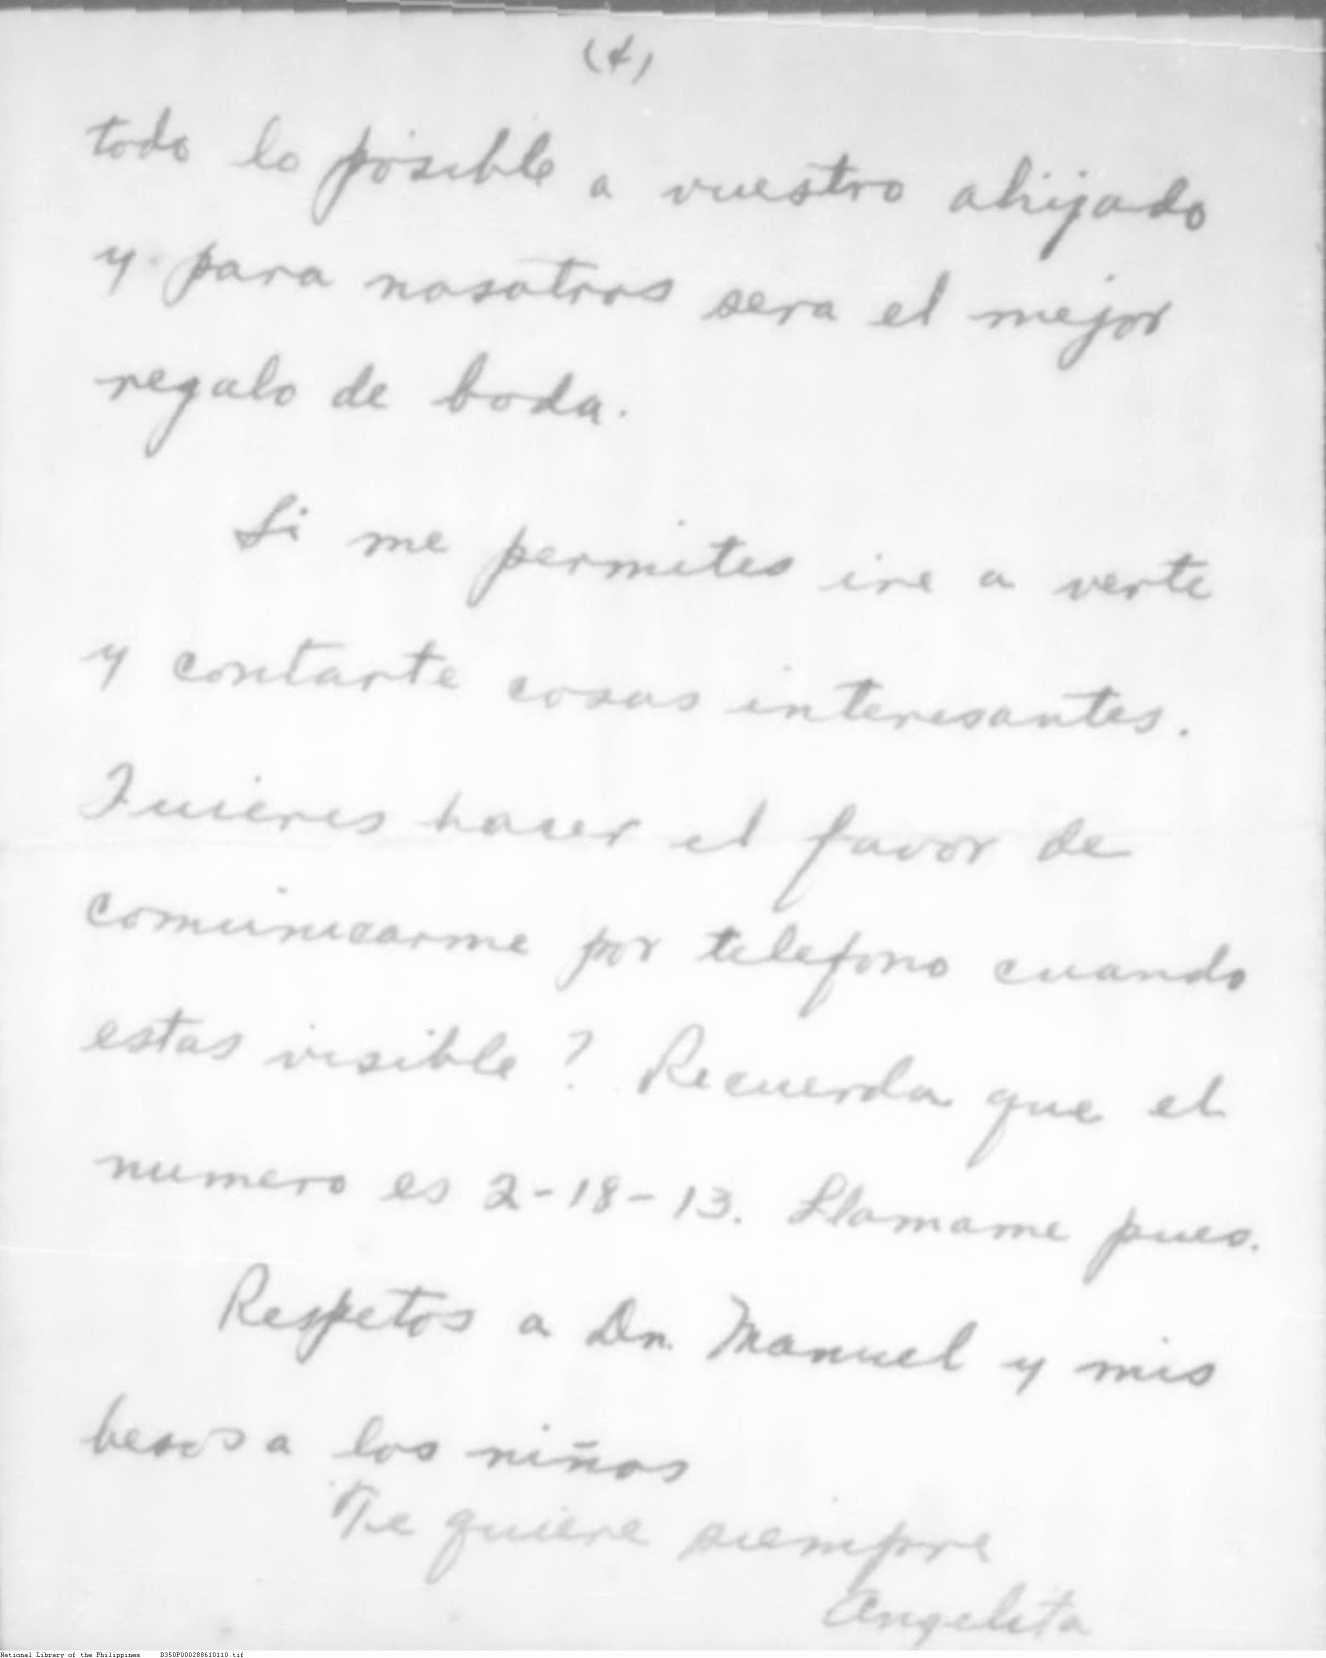 (4)
todo lo posible a vuestro ahijado
y para nosotros sera el mejor
regalo de boda.
Si me permites ire a verte
y contarte cosas interesantes.
Quieres hacer el favor de
comunicarme por telefono cuando
estas visible? Recuerda que el
numero es 2-18-13. Llamame pues.
Respetos a Dn. Manuel y mis
besos a los niños
Te quiere siempre
Angelita
National Library of the Philippines D350P000288610110.tif